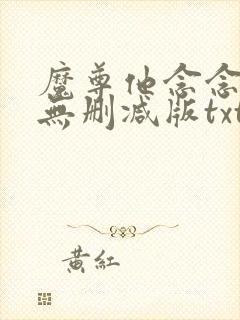 魔尊他念念
無删减版txt
黄紅